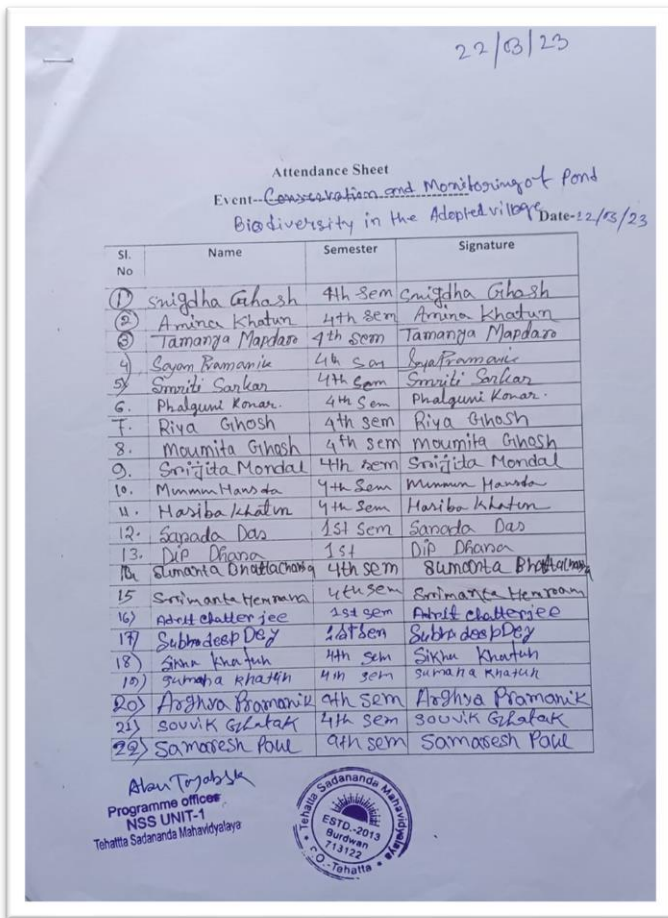 22/03/23
Attendance Sheet
Event--Conservation and Monitoring of Pond
Biodiversity in the Adopted village Date-22/03/23
Sl. No Name Semester Signature
1 Snigdha Ghosh 4th Sem Snigdha Ghosh
2 Amina Khatun 4th Sem Amina Khatun
3 Tamanga 4th Sem Tamanga
4) Sayan Pramanik 4th Pramanik
5) Smriti Sarkar 4th Sem Smriti Sarkar
6. Phalguni Konar. 4th Sem Phalguni Konar.
7. Riya Ghosh 4th sem Riya Ghosh
8. Moumita Ghosh 4th sem Moumita Ghosh
9. Srijita Mondal 4th sem Srijita Mondal
10. Munmun Hansda 4th Sem Munmun Hansda
11. Hasiba Khatun 4th Sem Hasiba Khatun
12. Das 1st Sem Das
13. Dip Dhana 1st Dip Dhana
Sumanta 4th sem Sumanta
15 Srimanta 4th sem Srimanta
16) chatterjee 1st sem chatterjee
17) Subhadeep Dey 1st Sem Subhadeep Dey
18) Khatun 4th sem Khatun
19) Khatun 4th sem Khatun
20) Arghya Pramanik 4th Sem Arghya Pramanik
21) Souvik Ghatak 4th Sem Souvik Ghatak
22) Samaresh Paul 4th sem Samaresh Paul
Programme officer
NSS UNIT-1
Tehatta Sadananda Mahavidyalaya
Tehatta Sadananda Mahavidyalaya
ESTD.-2013
Burdwan
713122
P.O.-Tehatta